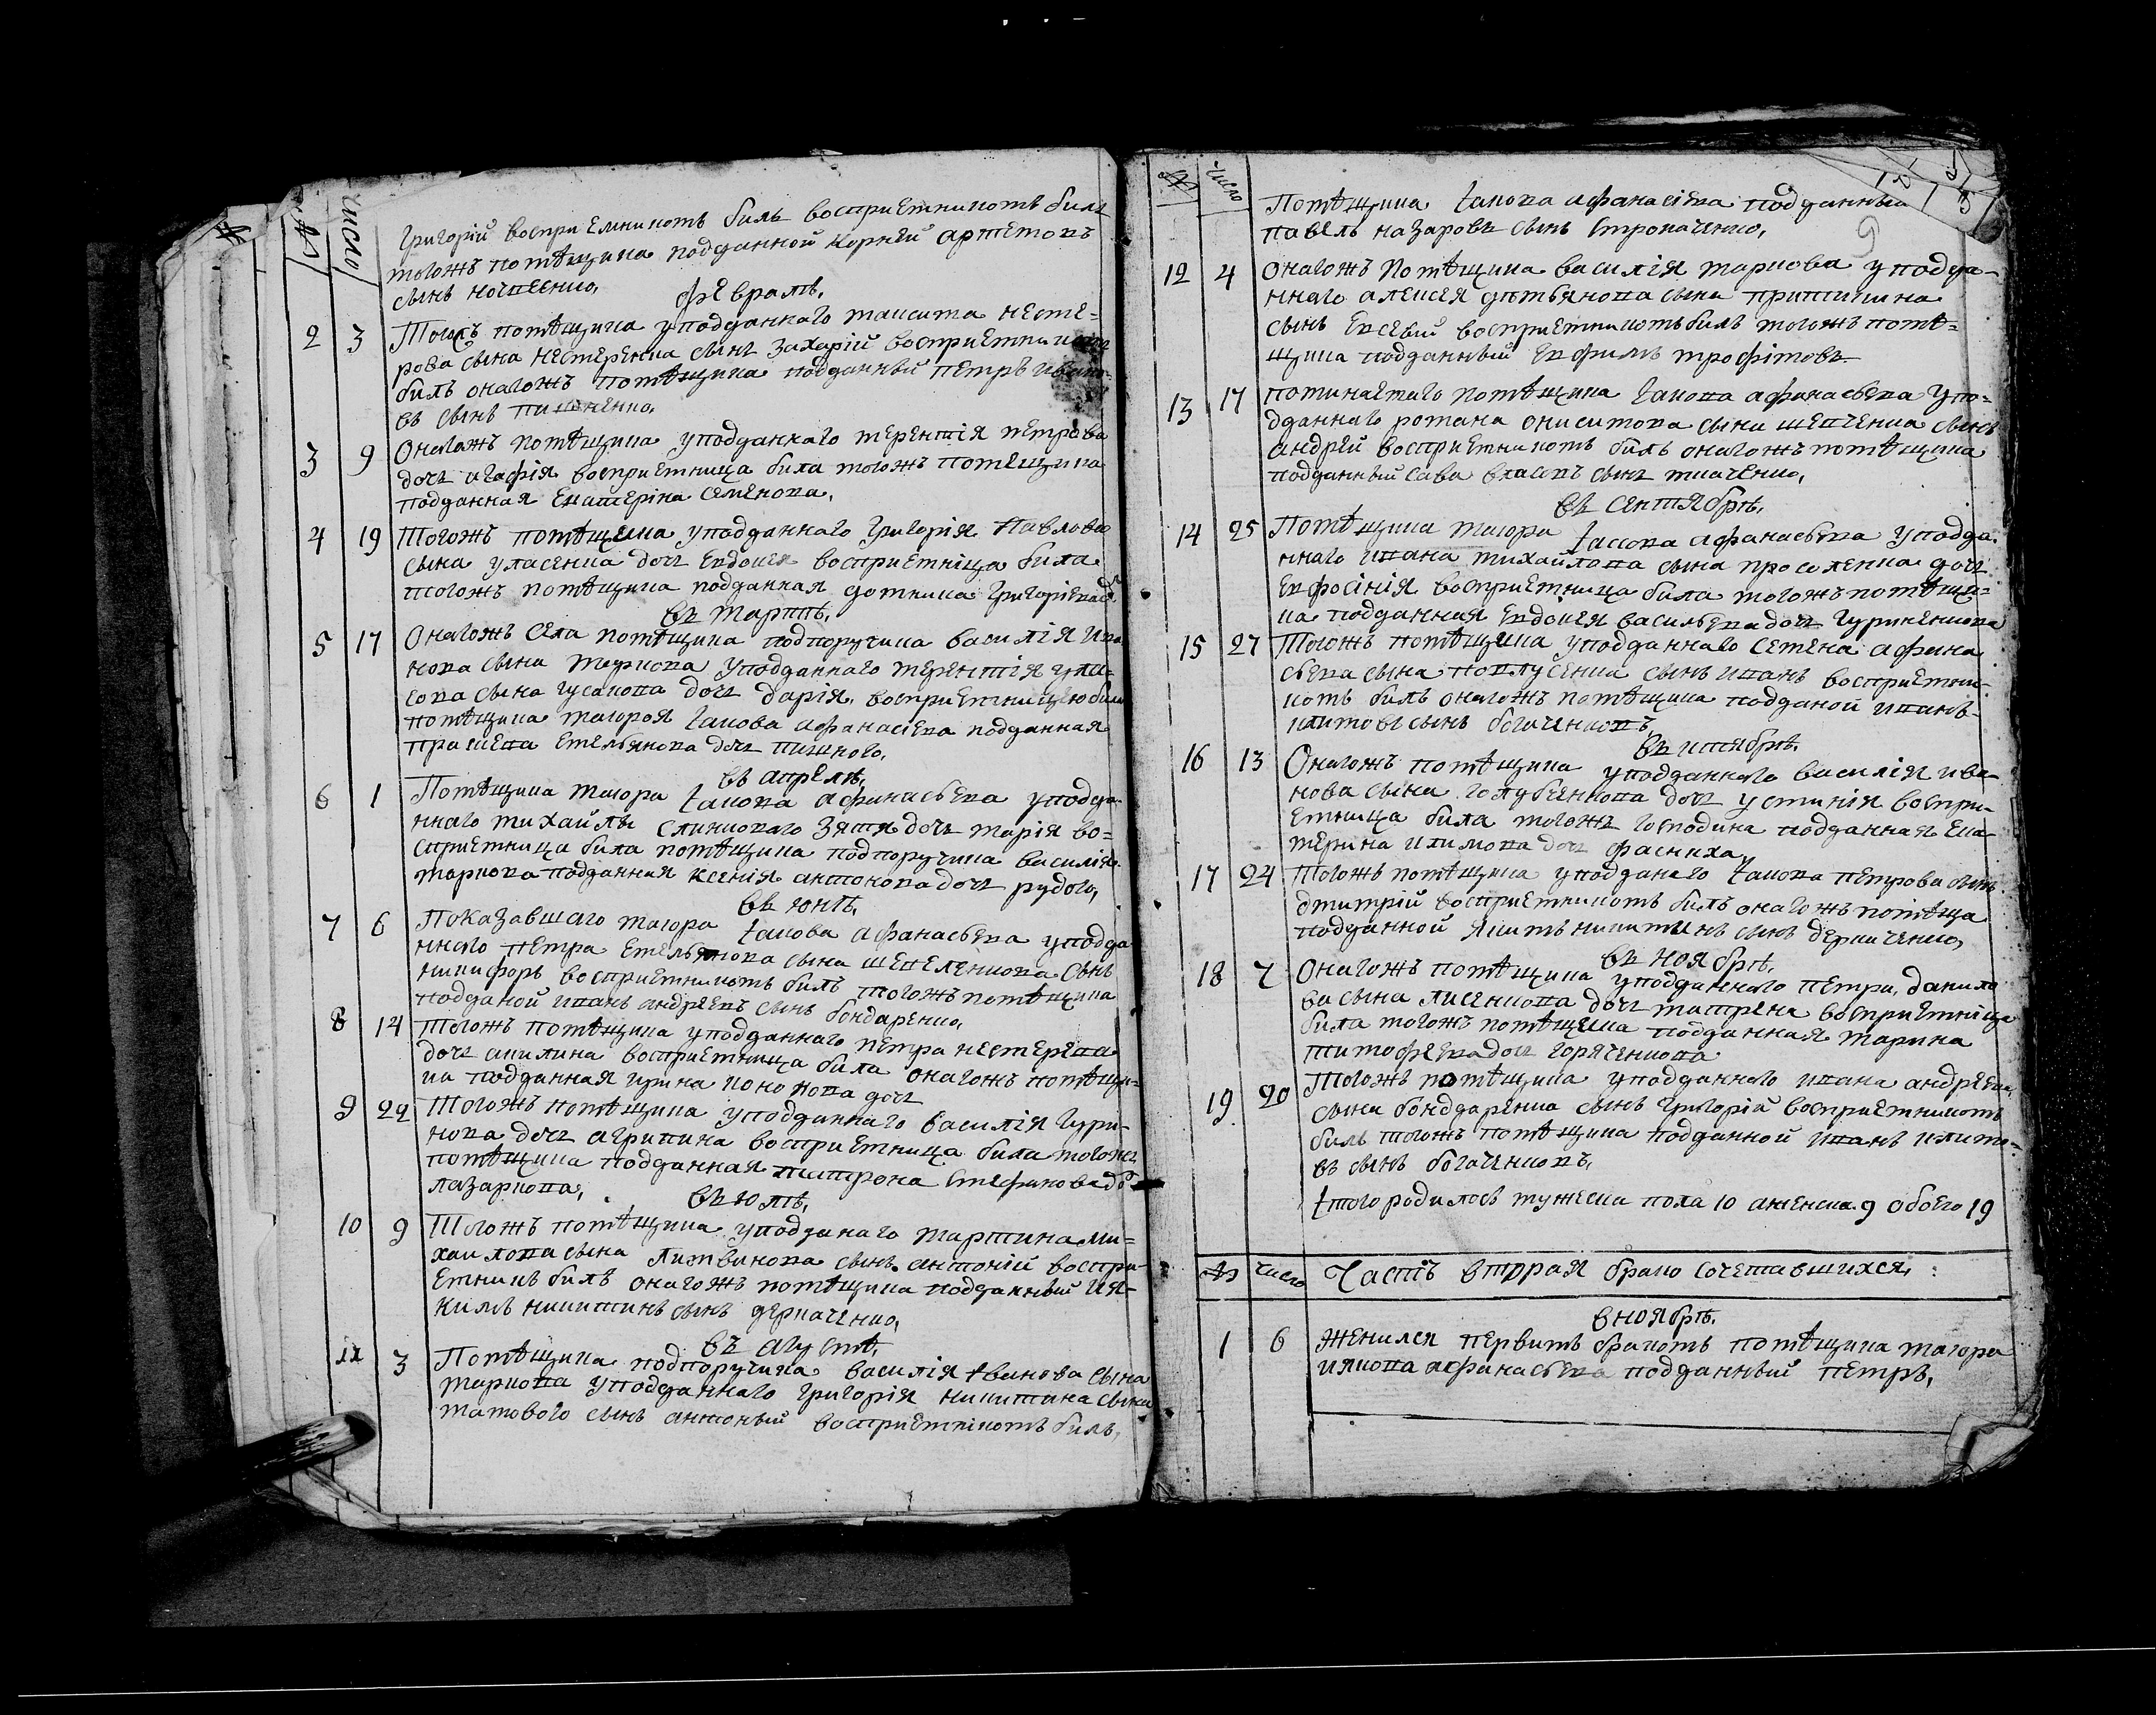 № число
Григорій восприемникомъ билъ восприемникомъ билъ
тогожъ помѣщика подданной корнѣй артемовъ
сынъ
февраль,
2 3 Тогожъ помѣщика уподданнаго максима несте-
рова сына нестеренка сынъ захарій восприемникомъ
билъ оногожъ помѣщика подданный петръ ивано-
въ сынъ
3 9 Оногожъ помѣщика уподданнаго терентія петрова
дочь агафія восприемница била тогожъ помещика
подданная екатеріна семенова,
4 19 Тогожъ помѣщика уподданнаго григорія павлова
сына уласенка дочь евдокія восприемніца била
тогожъ помѣщика подданная домника григоріева до
въ мартѣ,
5 17 Оногожъ села помѣщика подпоручика василія ива
нова сына маркова уподданнаго терентія
сова сына гусакова дочь дарія, восприемницею била
помѣщика маіороя іакова афанасіева подданная
емельянова дочь
въ апрелѣ,
6 1 Помѣщика маіора іакова афанасьева упода-
ннаго михайлы слинковаго зятя дочь марія во-
сприемница била помѣщика подпоручика василія
маркова подданная ксенія антонова дочь рудого,
въ юнѣ,
7 6 Показавшаго маіора іакова афанасьева упода
ннаго петра емельянова сына шепеленкова сынъ
никифоръ восприемникомъ билъ тогожъ помѣщика
подданой иванъ андреевъ сынъ бондаренко,
8 14 Тогожъ помѣщика уподданнаго петра нестерева
дочь акилина восприемница била оногожъ помѣщи-
ка подданная ирина кононова дочь
9 22 Тогожъ помѣщика уподданнаго василія гури-
нова дочь агрипина восприемница била тогожъ
помѣщика подданная матрона стефанова до
лазаркова,
въ юлѣ,
10 9 Тогожъ помѣщика уподданаго мартина ми-
хаилова сына литвинова сынъ антоній воспри-
емникъ билъ оногожъ помѣщика подданный ия-
кимъ никитинъ сынъ деркаченко,
въ августѣ,
11 3 Помѣщика подпоручика василія іванова сына
маркова уподданнаго григорія никитина сына
матового сынъ антоный восприемнікомъ билъ,
№ число
Помѣщика іакова афанасіева подданный
павелъ назаровъ сынъ строкаченко,
12 4 Оногожъ помѣщика василія маркова уподда-
ннаго алексея демьянова сына
сынъ евсевий восприемникомъ билъ тогожъ помѣ-
щика подданный ефимъ трофімовъ
13 17 поминаемаго помѣщика іакова афанасьева упо-
дданнаго романа онисимова сына шевченка сынъ
андрей восприемникомъ билъ оногожъ помѣщика
подданный сава власовъ сынъ ткаченко,
въ сентябрѣ,
14 25 Помѣщика маіора іакова афанасьева упода.
ннаго ивана михайлова сына дочь
евфросінія восприемница била тогожъ помѣщи-
ка подданная евдокія васильева дочь гуриненкова
15 27 Тогожъ помѣщика уподданнаго семена афана
сьева сына сынъ иванъ восприемни-
комъ билъ оногожъ помѣщика подданой иванъ
климовъ сынъ богаченковъ,
въ октябрѣ.
16 13 Оногожъ помѣщика уподданнаго василія ива-
нова сына голубченкова дочь устинія воспри-
емница била тогожъ господина подданная ека-
терина климова дочь
17 24 Тогожъ помѣщика уподданаго іакова петрова сынъ
дмитрій восприемникомъ билъ оногожъ помѣща
подданной якимъ никитинъ сынъ деркаченко,
въ ноябрѣ,
18 7 Оногожъ помѣщика уподданнаго петра данило
ва сына лисенкова дочь матрена восприемніца
била тогожъ помѣщика подданная марина
тимофеева дочь горяченкова
19 20 Тогожъ помѣщика уподданнаго ивана андреева
сына бонддаренка сынъ григорій восприемникомъ
билъ тогожъ помѣщика подданной иванъ климо-
въ сынъ богаченковъ,
Ітого родилось мужеска пола 10 а женска 9 обоего 19
№ число Часть вторрая брако сочетавшихся,
в ноябрѣ.
1 6 женился первимъ бракомъ помѣщика маіора
иякова афанасьева подданный петръ,